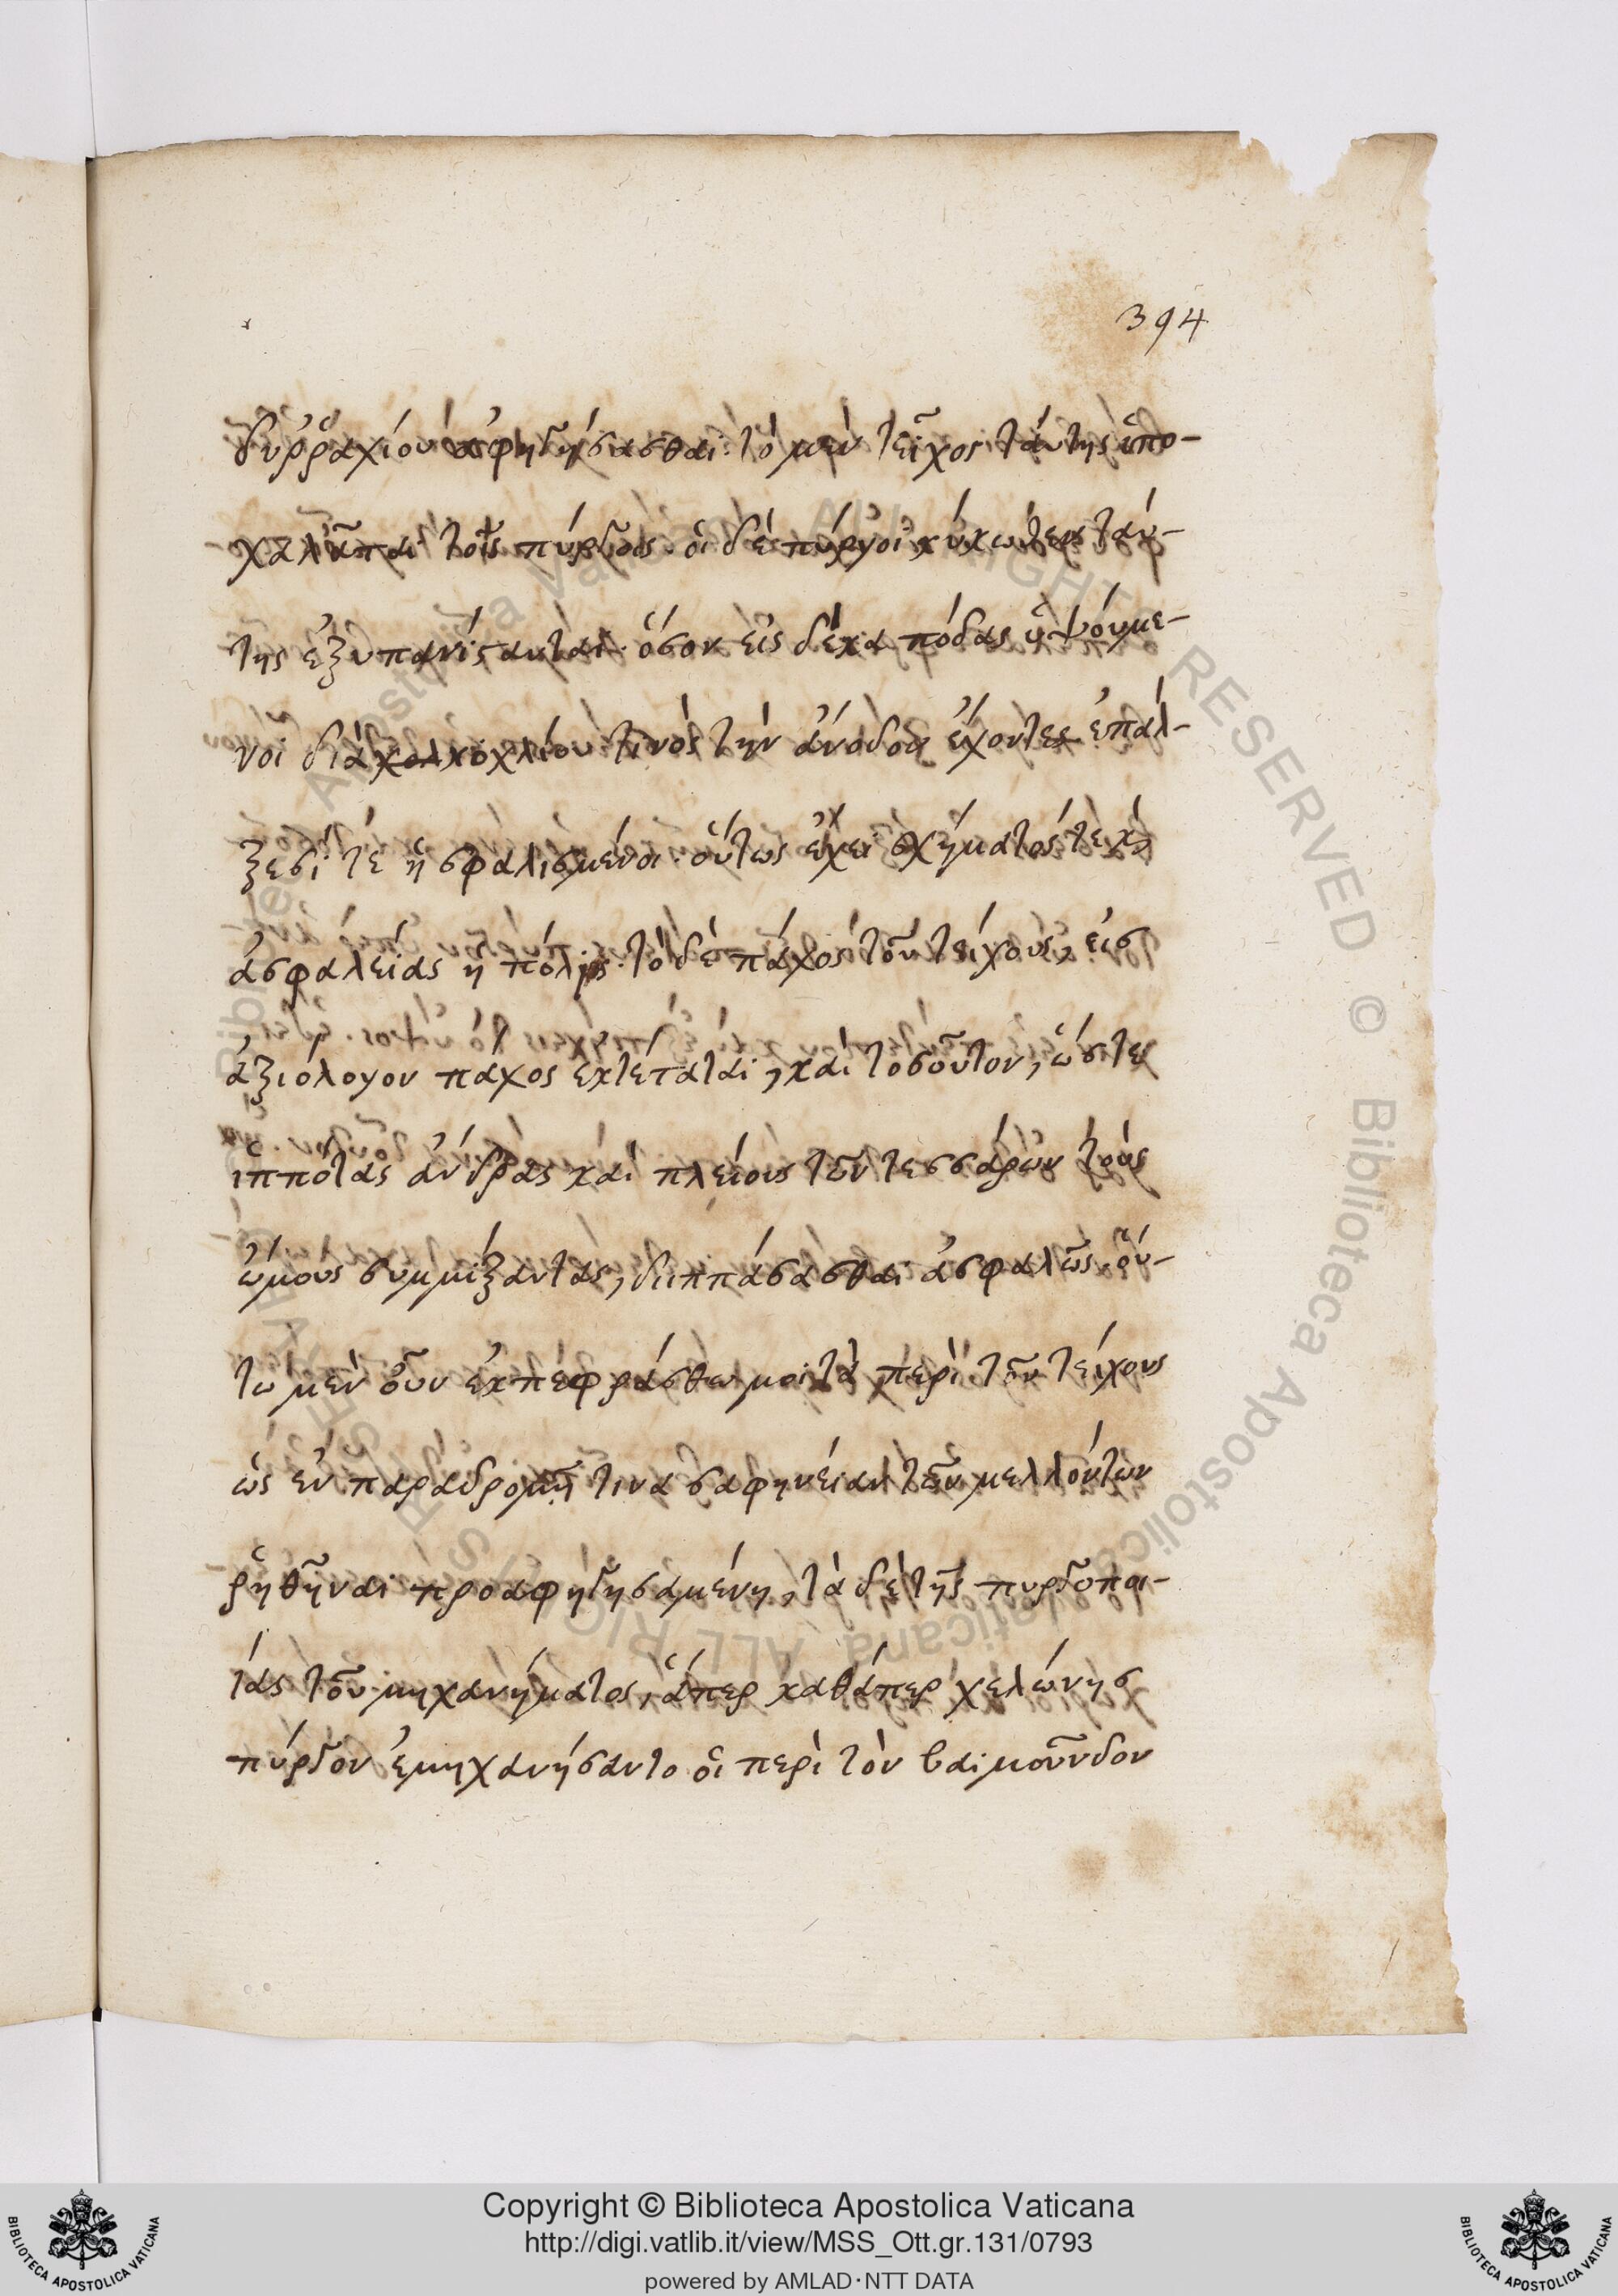 394
δυρραχίου ἀφηγήσασθαι· τὸ μὲν τεῖχος ταύτης ὑπο-
χαλᾶται τοῖς πύργοις· οἱ δὲ πύργοι κύκλωθεν ταύ-
της ἐξυπανίστανται· ὅσον εἰς δέκα πόδας ὑψούμε-
νοι διὰ κοχλίου τινὸς τὴν ἄνοδον ἔχοντες ἐπάλ-
ξεσί τε ἠσφαλισμένοι· οὕτως ἔχει σχήματός τε καὶ
ἀσφαλείας ἡ πόλις· τὸ δὲ πάχος τοῦ τείχους, εἰς
ἀξιόλογον πάχος ἐκτέταται, καὶ τοσοῦτον, ὥστε
ἱππότας ἄνδρας καὶ πλείους τῶν τεσσάρων τοὺς
ὤμους συμμίξαντας, διιππάσασθαι ἀσφαλῶς. οὕ-
τω μὲν οὖν ἐκπεφράσθω μοι τὰ περὶ τοῦ τείχους
ὡς ἐν παραδρομῇ τινα σαφηνείαν τῶν μελλόντων
ῥηθῆναι προαφηγησαμένη, τὰ δὲ τῆς πυργοποι-
ίας τοῦ μηχανήματος, ἅπερ καθάπερ χελώνης
πύργον ἐμηχανήσαντο οἱ περὶ τὸν βαϊμοῦνδον
Copyright © Biblioteca Apostolica Vaticana
http://digi.vatlib.it/view/MSS_Ott.gr.131/0793
powered by AMLAD·NTT DATA
BIBLIOTECA APOSTOLICA VATICANA
BIBLIOTECA APOSTOLICA VATICANA